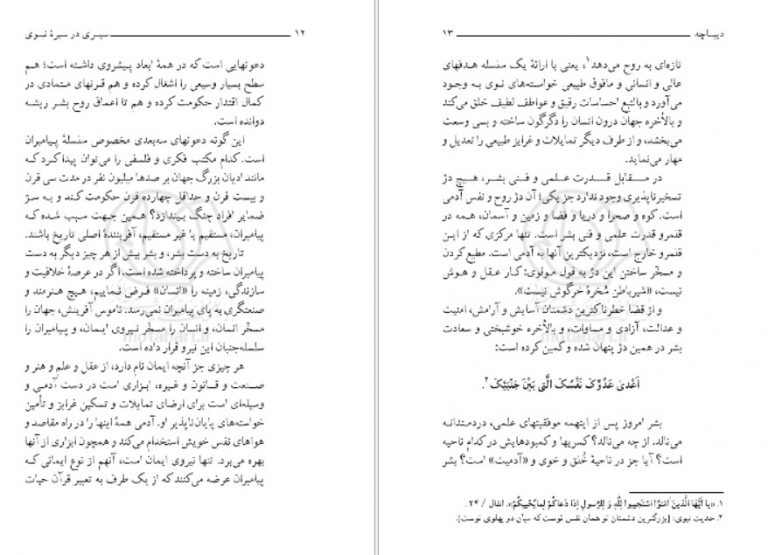 ۱۲ سیری در سیرهٔ نبوی
دعوتهایی است که در همهٔ ابعاد پیشروی داشته است؛ هم
سطح بسیار وسیعی را اشغال کرده و هم قرنهای متمادی در
کمال اقتدار حکومت کرده و هم تا اعماق روح بشر ریشه
دوانده است.
این گونه دعوتهای سه‌بعدی مخصوص سلسلهٔ پیامبران
است. کدام مکتب فکری و فلسفی را می‌توان پیدا کرد که
مانند ادیان بزرگ جهان بر صدها میلیون نفر در مدت سی قرن
و بیست قرن و حداقل چهارده قرن حکومت کند و به سرّ
ضمایر افراد چنگ بیندازد؟ همین جهت سبب شده که
پیامبران، مستقیم یا غیر مستقیم، آفرینندهٔ اصلی تاریخ باشند.
تاریخ به دست بشر، و بشر بیش از هر چیز دیگر به دست
پیامبران ساخته و پرداخته شده است. اگر در عرصهٔ خلاقیت و
سازندگی، زمینه را «انسان» فرض نماییم، هیچ هنرمند و
صنعتگری به پای پیامبران نمی‌رسد. ناموس آفرینش، جهان را
مسخّر انسان، و انسان را مسخّر نیروی ایمان، و پیامبران را
سلسله‌جنبان این نیرو قرار داده است.
هر چیزی جز آنچه ایمان نام دارد، از عقل و علم و هنر و
صنعت و قانون و غیره، ابزاری است در دست آدمی و
وسیله‌ای است برای ارضای تمایلات و تسکین غرایز و تأمین
خواسته‌های پایان‌ناپذیر او. آدمی همهٔ اینها را در راه مقاصد و
هواهای نفس خویش استخدام می‌کند و همچون ابزاری از آنها
بهره می‌برد. تنها نیروی ایمان است، آنهم از نوع ایمانی که
پیامبران عرضه می‌کنند که از یک طرف به تعبیر قرآن حیات
دیباچه ۱۳
تازه‌ای به روح می‌دهد۱، یعنی با ارائهٔ یک سلسله هدفهای
عالی و انسانی و مافوق طبیعی خواسته‌های نوی به وجود
می‌آورد و بالتبع احساسات رقیق و عواطف لطیف خلق می‌کند
و بالأخره جهان درون انسان را دگرگون ساخته و بسی وسعت
می‌بخشد، و از طرف دیگر تمایلات و غرایز طبیعی را تعدیل و
مهار می‌نماید.
در مقابل قدرت علمی و فنی بشر، هیچ دژ
تسخیرناپذیری وجود ندارد جز یکی؛ آن دژ روح و نفس آدمی
است. کوه و صحرا و دریا و فضا و زمین و آسمان، همه در
قلمرو قدرت علمی و فنی بشر است. تنها مرکزی که از این
قلمرو خارج است، نزدیکترین آنها به آدمی است. مطیع کردن
و مسخّر ساختن این دژ به قول مولوی: کار عقل و هوش
نیست، «شیر باطن سُخرهٔ خرگوش نیست».
و از قضا خطرناکترین دشمنان آسایش و آرامش، امنیت
و عدالت، آزادی و مساوات، و بالأخره خوشبختی و سعادت
بشر در همین دژ پنهان شده و کمین کرده است:
اَعْدیٰ عَدُوِّکَ نَفْسُکَ الَّتی بَیْنَ جَنْبَیْکَ۲.
بشر امروز پس از اینهمه موفقیتهای علمی، دردمندانه
می‌نالد. از چه می‌نالد؟ کسریها و کمبودهایش در کدام ناحیه
است؟ آیا جز در ناحیهٔ خُلق و خوی و «آدمیت» است؟ بشر
۱. «یا اَیُّهَا الَّذینَ امَنُوا اسْتَجیبوا لِلّٰهِ وَ لِلرَّسولِ اِذا دَعاکُمْ لِما یُحْییکُمْ». انفال / ۲۴ .
۲. حدیث نبوی: [بزرگترین دشمنان تو همان نفس توست که میان دو پهلوی توست].